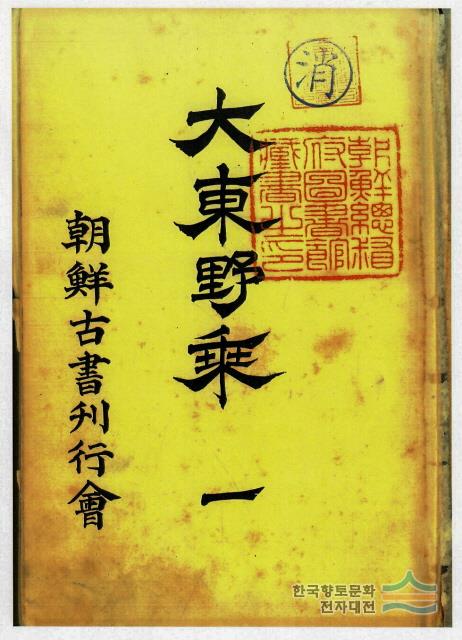 消
大東野乘 一
朝鮮總督
府圖書館
藏書之印
朝鮮古書刊行會
한국향토문화
전자대전